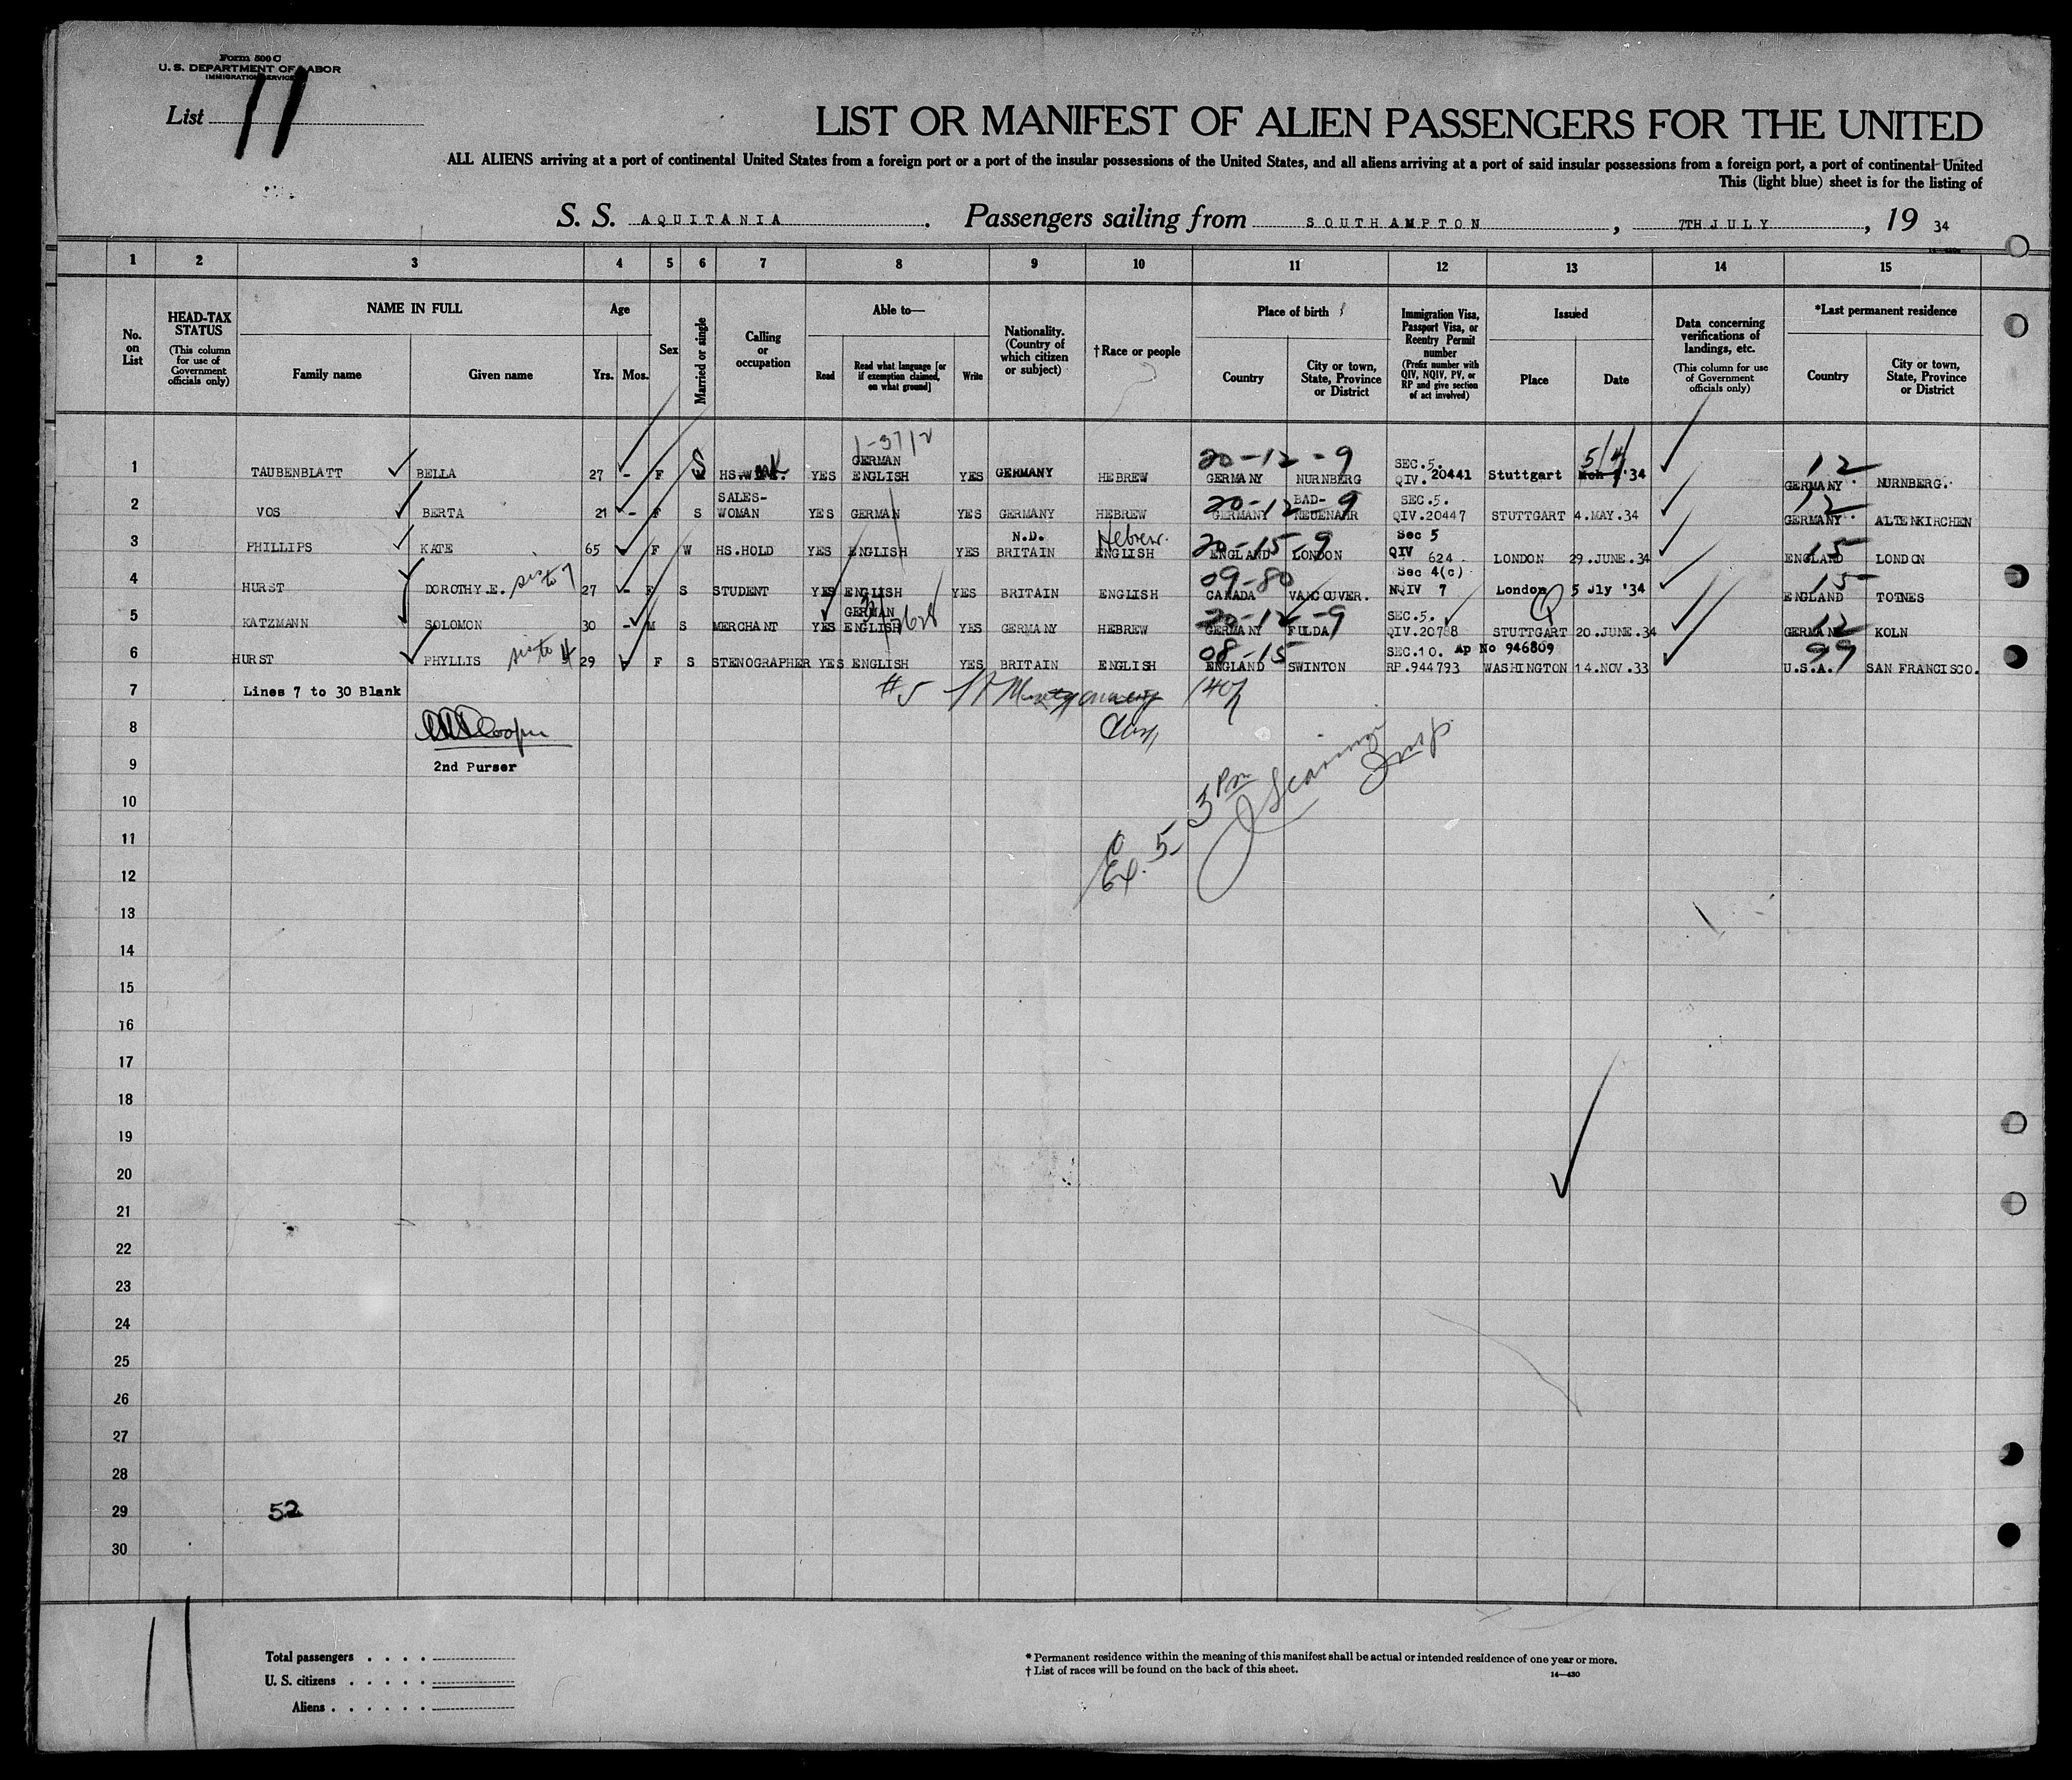 Form 500 C
U. S. DEPARTMENT OF LABOR
IMMIGRATION SERVICE
List 11
LIST OR MANIFEST OF ALIEN PASSENGERS FOR THE UNITED
ALL ALIENS arriving at a port of continental United States from a foreign port or a port of the insular possessions of the United States, and all aliens arriving at a port of said insular possessions from a foreign port, a port of continental United
This (light blue) sheet is for the listing of
S. S. AQUITANIA. Passengers sailing from SOUTHAMPTON, 7TH JULY, 19 34
1 2 3 4 5 6 7 8 9 10 11 12 13 14 15
No. on List
HEAD-TAX STATUS (This column for use of Government officials only)
NAME IN FULL
Family name
Given name
Age
Yrs. Mos.
Sex
Married or single
Calling or occupation
Able to—
Read
Read what language [or if exemption claimed, on what ground]
Write
Nationality. (Country of which citizen or subject)
†Race or people
Place of birth
Country
City or town, State, Province or District
Immigration Visa, Passport Visa, or Reentry Permit number (Prefix number with QIV, NQIV, PV, or RP and give section of act involved)
Issued
Place
Date
Data concerning verifications of landings, etc. (This column for use of Government officials only)
*Last permanent residence
Country
City or town, State, Province or District
1 TAUBENBLATT BELLA 27 - F S HS.W YES GERMAN ENGLISH YES GERMANY HEBREW 20-12-9 GERMANY NURNBERG SEC.5. QIV. 20441 Stuttgart 5/4 '34 12 GERMANY NURNBERG.
2 VOS BERTA 21 - F S SALES-WOMAN YES GERMAN YES GERMANY HEBREW 20-12-9 GERMANY BAD-NEUENAHR SEC.5. QIV.20447 STUTTGART 4.MAY.34 12 GERMANY ALTENKIRCHEN
3 PHILLIPS KATE 65 F W HS.HOLD YES ENGLISH YES N.D. BRITAIN Hebrew. ENGLISH 20-15-9 ENGLAND LONDON Sec 5 QIV 624 LONDON 29.JUNE.34 15 ENGLAND LONDON
4 HURST DOROTHY.E. sis to 7 27 - F S STUDENT YES ENGLISH YES BRITAIN ENGLISH 09-80 CANADA VANCOUVER. Sec 4(c) NQIV 7 London 5 Jly '34 15 ENGLAND TOTNES
5 KATZMANN SOLOMON 30 - M S MERCHANT YES GERMAN ENGLISH YES GERMANY HEBREW 20-12-9 GERMANY FULDA SEC.5. QIV.20788 STUTTGART 20.JUNE.34 12 GERMANY KOLN
6 HURST PHYLLIS sis to 4 29 F S STENOGRAPHER YES ENGLISH YES BRITAIN ENGLISH 08-15 ENGLAND SWINTON SEC.10. Ap No 946809 RP.944793 WASHINGTON 14.NOV.33 99 U.S.A. SAN FRANCISCO.
7 Lines 7 to 30 Blank
#5
8 Cooper
9 2nd Purser
10
11
12
13
14
15
16
17
18
19
20
21
22
23
24
25
26
27
28
29 52
30
11
Total passengers . . . .
U. S. citizens . . . . .
Aliens . . . . . .
* Permanent residence within the meaning of this manifest shall be actual or intended residence of one year or more.
† List of races will be found on the back of this sheet.
14—430